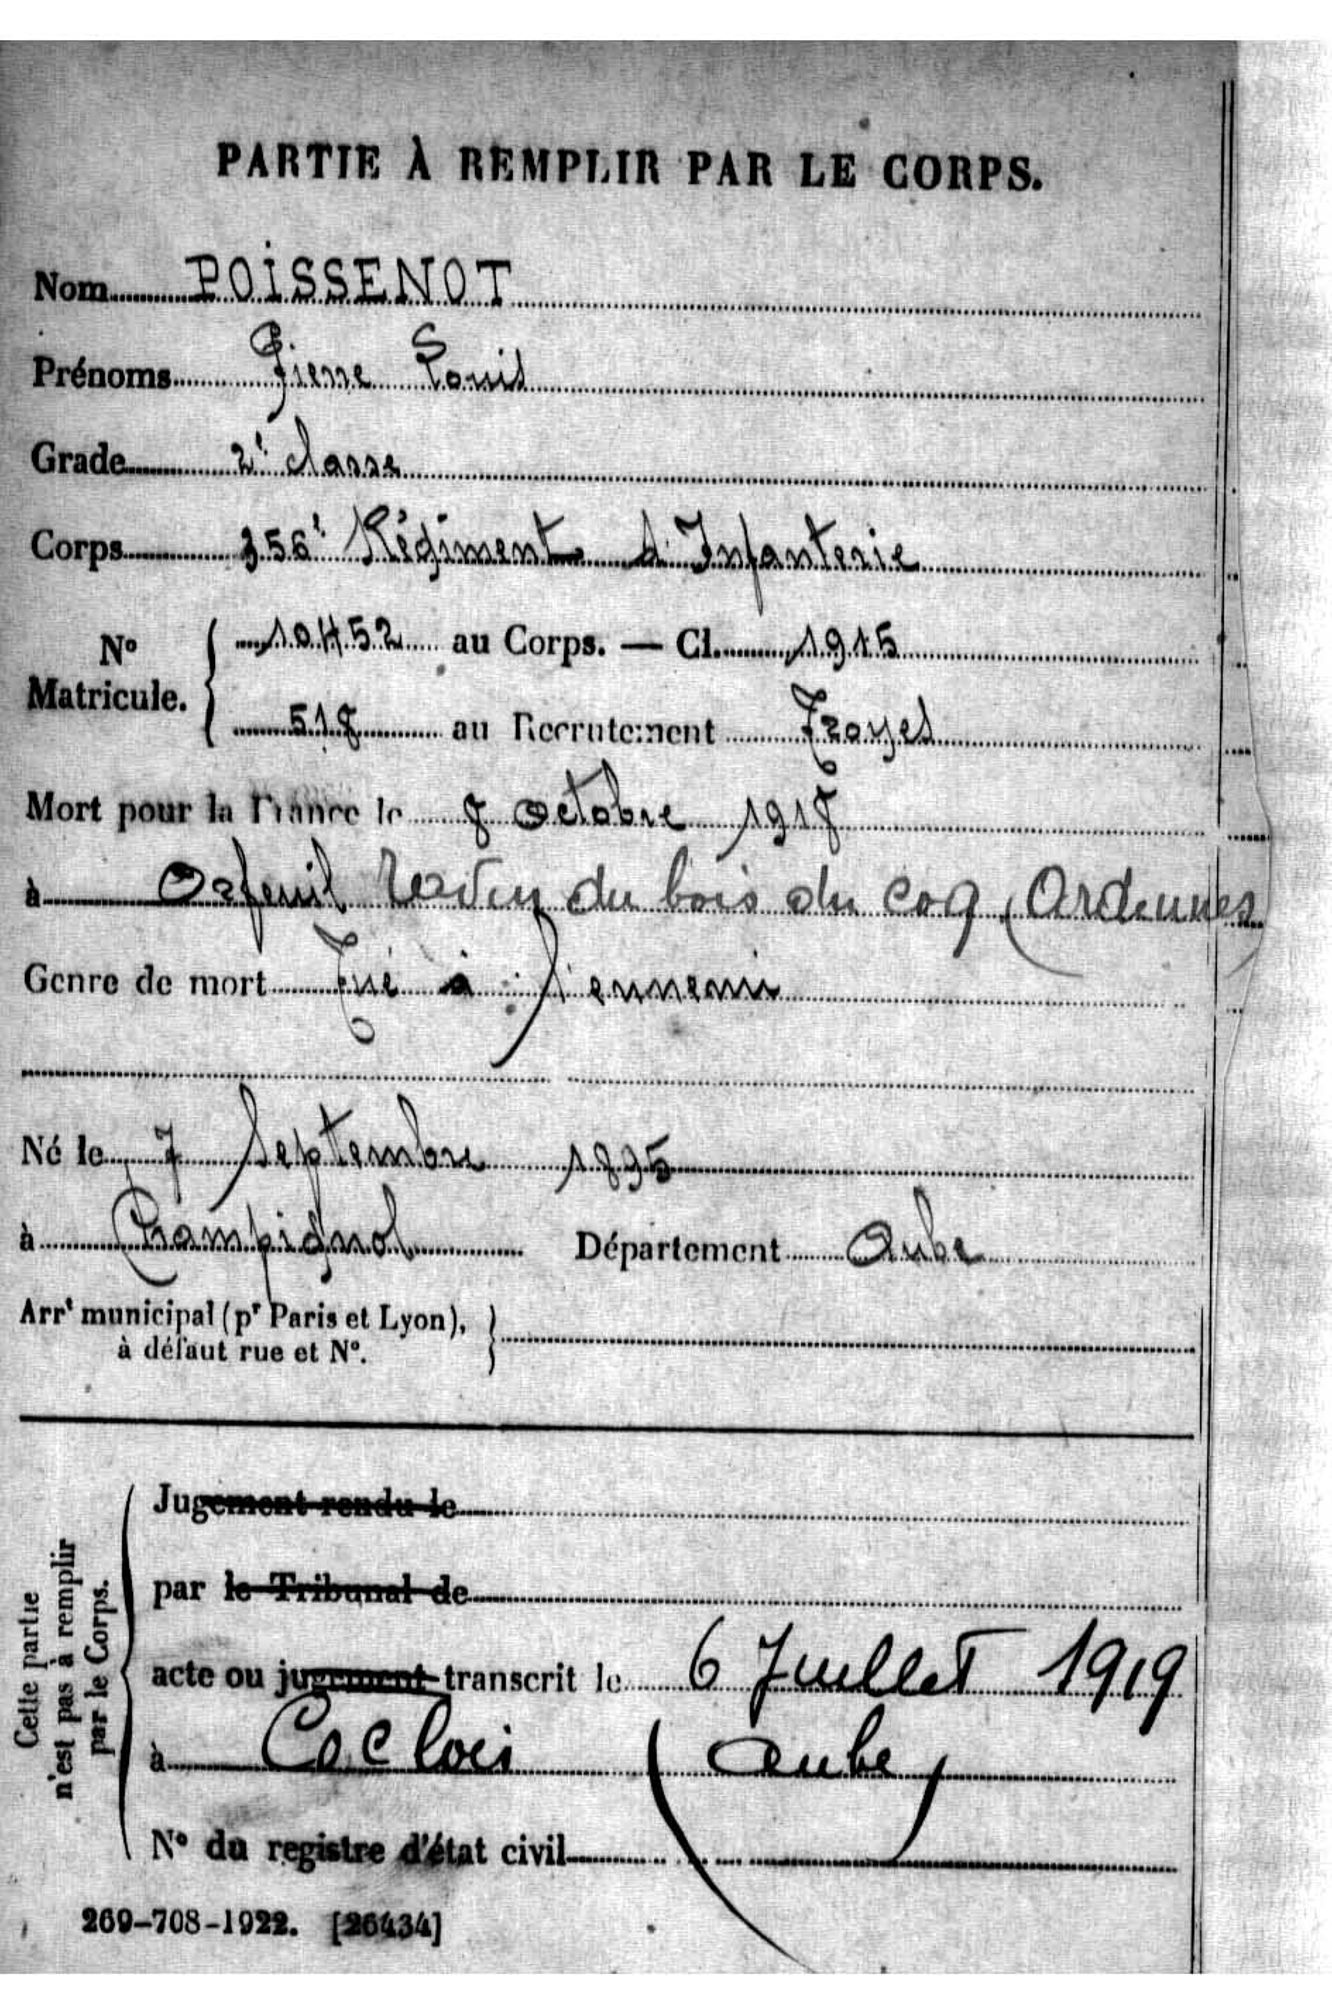 PARTIE À REMPLIR PAR LE CORPS.
Nom POISSENOT
Prénoms Pierre Louis
Grade 2e classe
Corps 356e Régiment d'Infanterie
No Matricule. { 10452 au Corps. — Cl. 1915
518 au Recrutement Troyes
Mort pour la France le 8 octobre 1918
à Orfeuil ravin du bois du coq (Ardennes)
Genre de mort Tué à l'ennemi
Né le 7 Septembre 1895
à Champignol Département Aube
Arrt municipal (pr Paris et Lyon), à défaut rue et No. }
Cette partie n'est pas à remplir par le Corps.
Jugement rendu le
par le Tribunal de
acte ou jugement transcrit le 6 Juillet 1919
à Coclois (Aube)
No du registre d'état civil
269-708-1922. [26434]